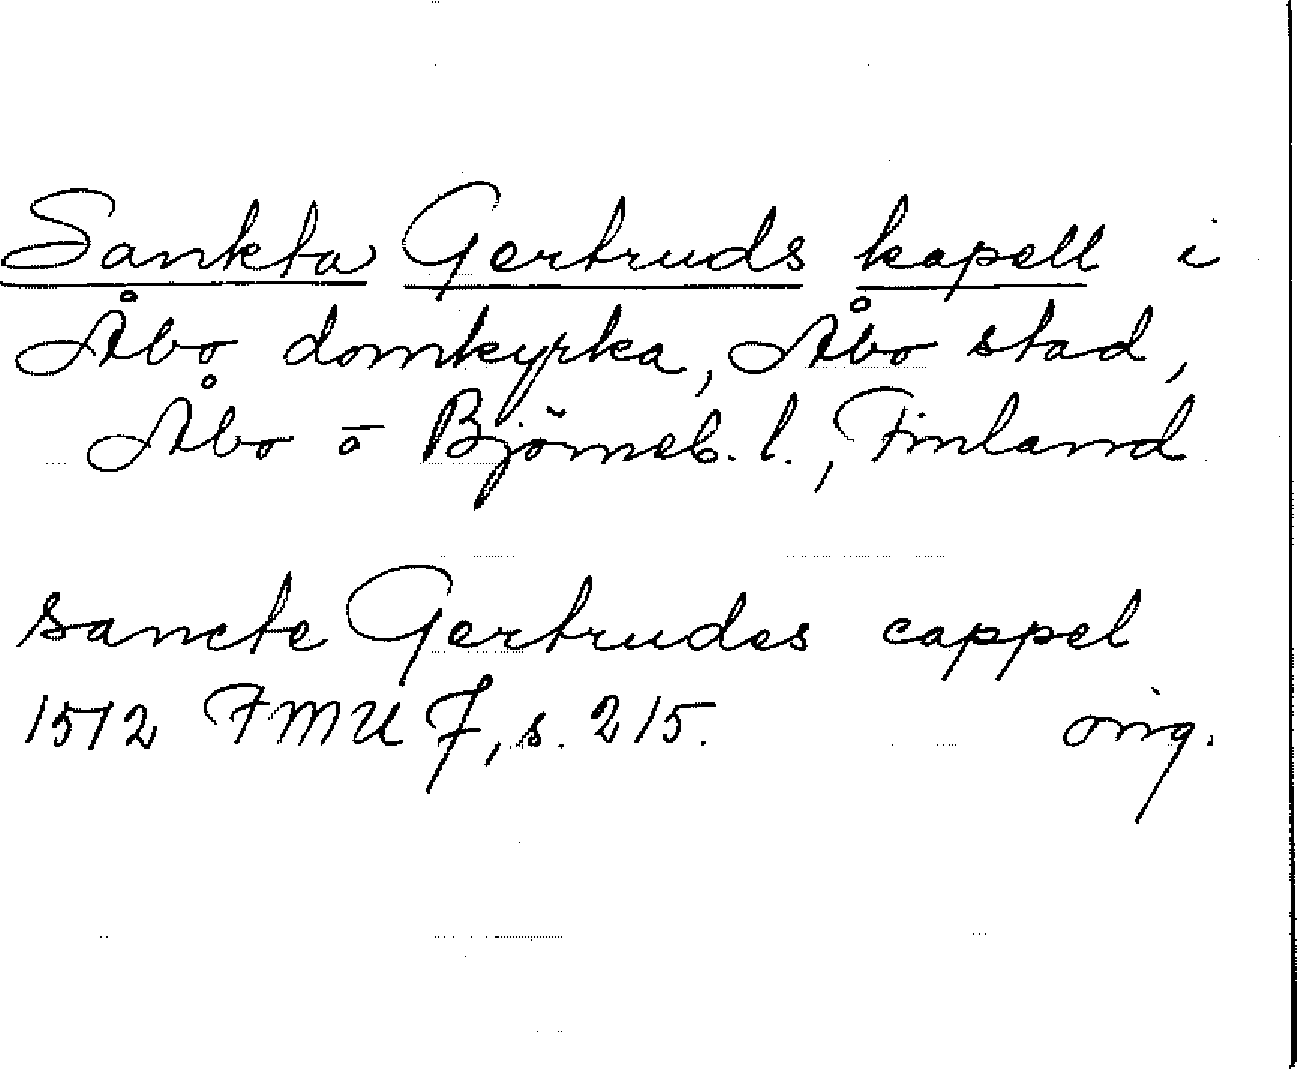 Sankta Gertruds kapell i
Åbo domkyrka, Åbo stad,
Åbo o Björneb. l., Finland
sancte Gertrudes cappel
1512 FMU 7, s. 215. orig.